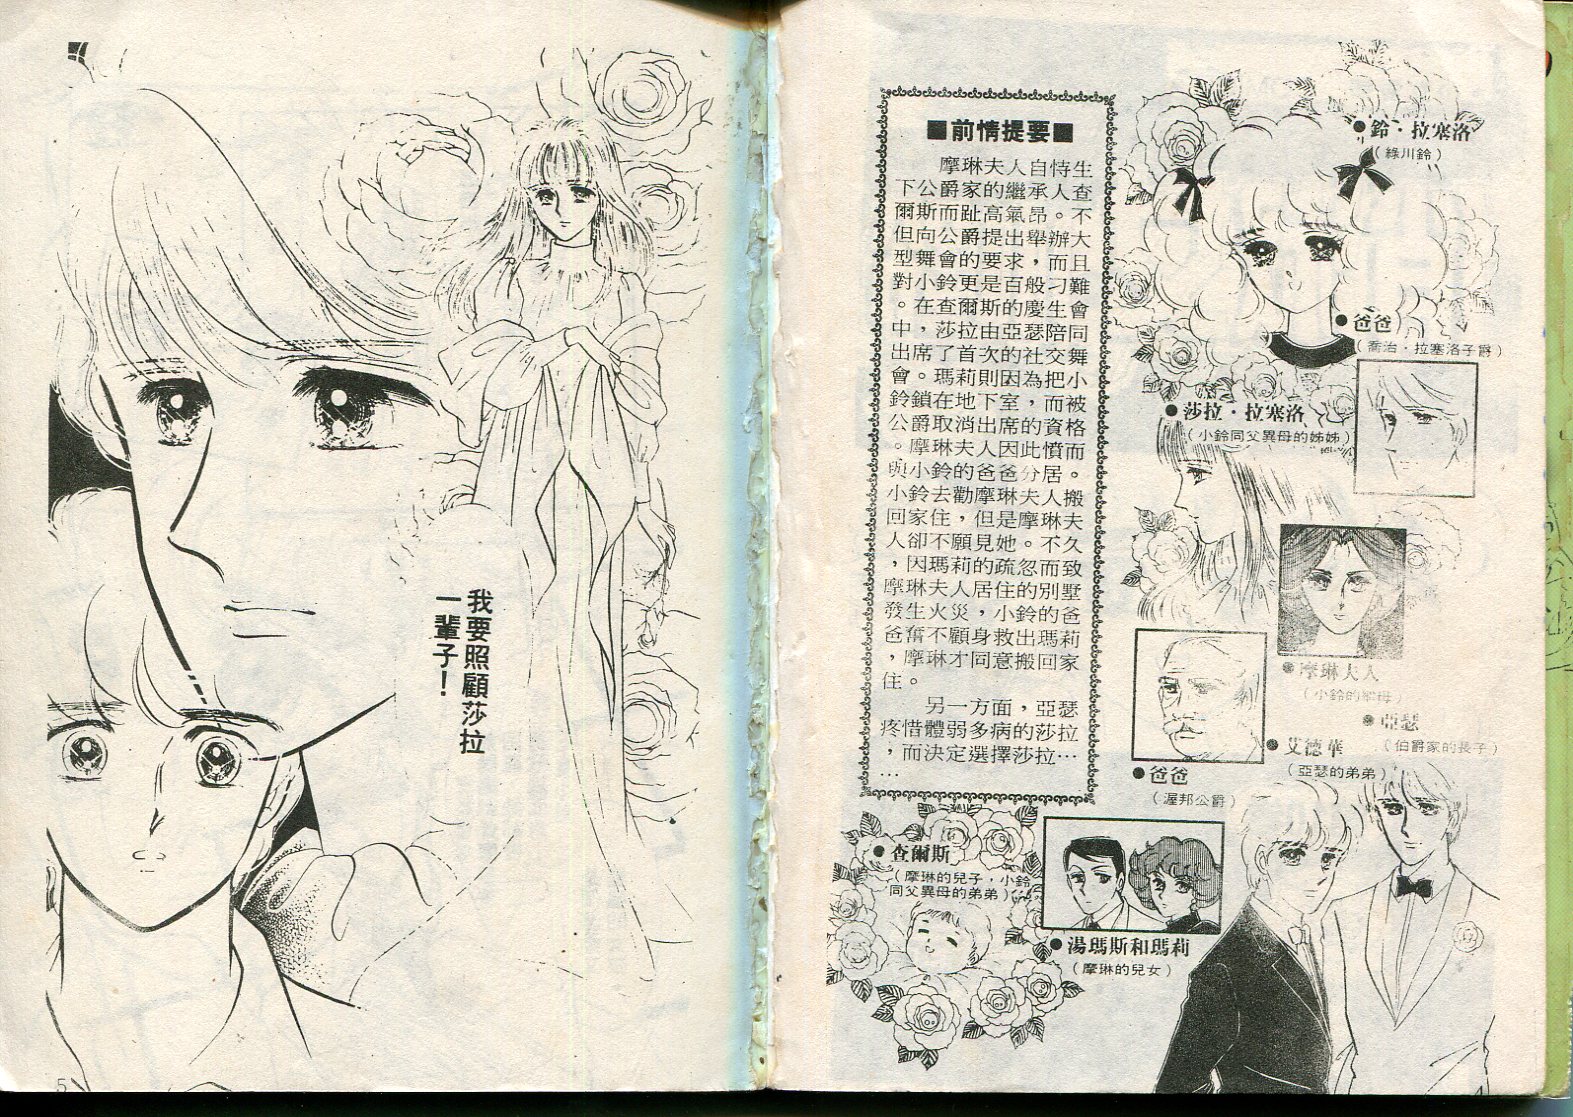 ■前情提要■
摩琳夫人自恃生
下公爵家的繼承人查
爾斯而趾高氣昂。不
但向公爵提出舉辦大
型舞會的要求，而且
對小鈴更是百般刁難
。在查爾斯的慶生會
中，莎拉由亞瑟陪同
出席了首次的社交舞
會。瑪莉則因為把小
鈴鎖在地下室，而被
公爵取消出席的資格
。摩琳夫人因此憤而
與小鈴的爸爸分居。
小鈴去勸摩琳夫人搬
回家住，但是摩琳夫
人卻不願見她。不久
，因瑪莉的疏忽而致
摩琳夫人居住的別墅
發生火災，小鈴的爸
爸奮不顧身救出瑪莉
，摩琳才同意搬回家
住。
另一方面，亞瑟
疼惜體弱多病的莎拉
，而決定選擇莎拉…
…
●鈴・拉塞洛
（綠川鈴）
●爸爸
（喬治・拉塞洛子爵）
●莎拉・拉塞洛
（小鈴同父異母的姊姊）
●摩琳夫人
（小鈴的繼母）
●亞瑟
（伯爵家的長子）
●艾德華
（亞瑟的弟弟）
●爸爸
（渥邦公爵）
●查爾斯
（摩琳的兒子，小鈴
同父異母的弟弟）
●湯瑪斯和瑪莉
（摩琳的兒女）
我要照顧莎拉
一輩子！
5